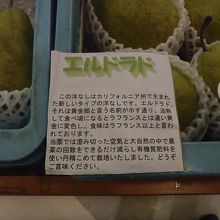 エルドラド
この洋なしはカリフォルニア州で生ま
れた新しいタイプの洋なしです。エルドラド、
それは黄金郷と言う名前が示す通り、追熟
して食べ頃になるとラフランスとは違い黄
金に変色し、食味はラフランス以上と言わ
れております。
当園では澄み切った空気と大自然の中で農
薬の回数をできるだけ減らし有機質肥料を
使い丹精こめて栽培いたしました。どうぞ
ご賞味ください。